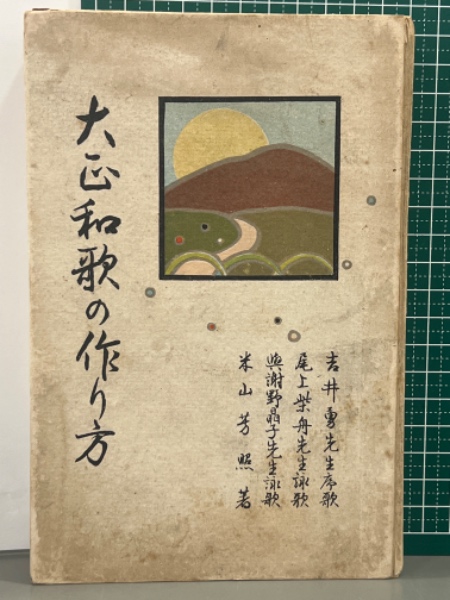 大正和歌の作り方
吉井勇先生序歌
尾上柴舟先生詠歌
與謝野晶子先生詠歌
米山芳照著